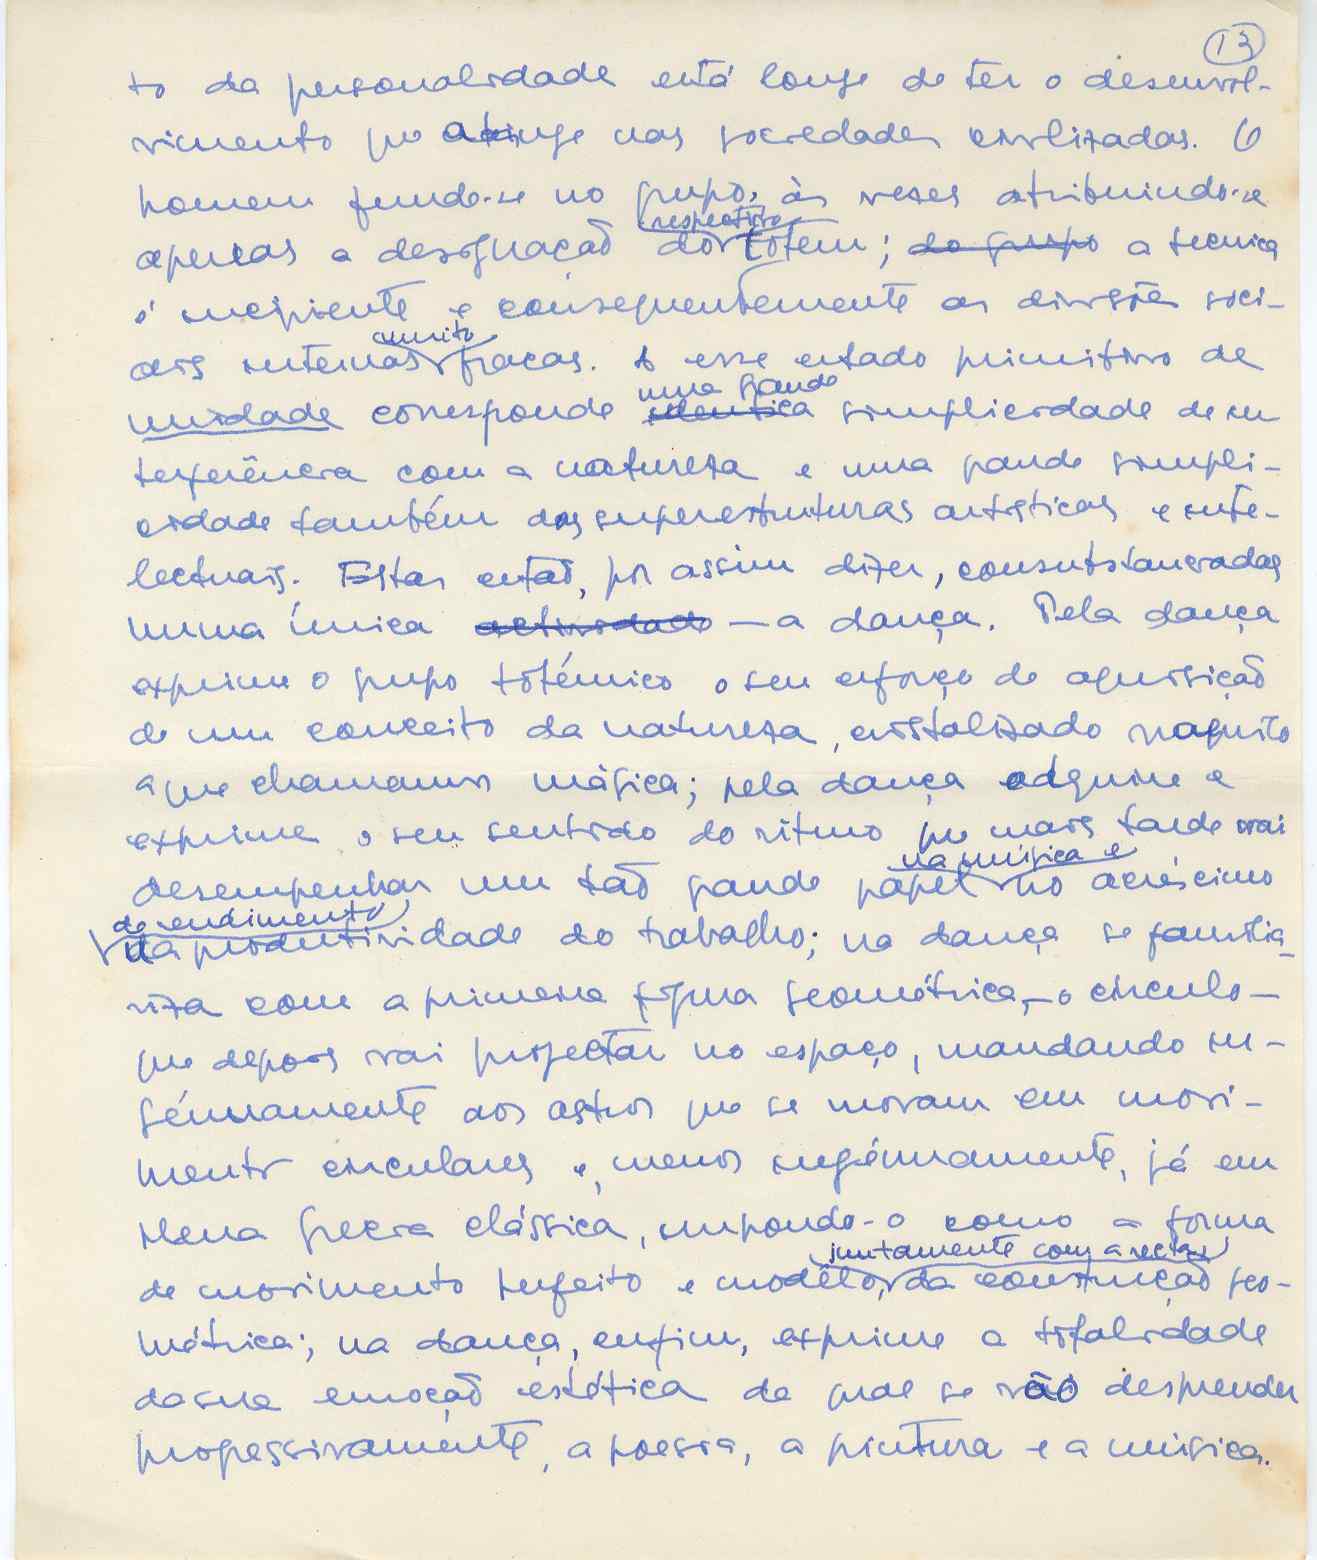 13
to da personalidade está longe de ter o desenvol-
vimento que atinge nas sociedades civilizadas. O
homem funde-se no grupo, às vezes atribuindo-se
respectivo
apenas a designação do totem; do grupo a tecnica
é incipiente e consequentemente as divisões soci-
muito
ais internas fracas. A esse estado primitivo de
uma grande
unidade corresponde identica simplicidade de in
terferência com a natureza e uma grande simpli-
cidade também das superestruturas artisticas e inte-
lectuais. Estas estão, por assim dizer, consubstanciadas
numa única actividade — a dança. Pela dança
exprime o grupo totémico o seu esforço de aquisição
de um conceito da natureza, cristalizado naquilo
a que chamamos mágica; pela dança adquire e
exprime o seu sentido do ritmo que mais tarde vai
na música e
desempenhar um tão grande papel no acréscimo
do rendimento
da produtividade do trabalho; na dança se familia-
riza com a primeira figura geométrica, — o circulo —
que depois vai projectar no espaço, mandando in-
génuamente aos astros que se movam em movi-
mentos circulares e, menos ingénuamente, já em
plena Grecia clássica, impondo-o como a forma
juntamente com a recta,
de movimento perfeito e modêlo, da construção geo-
métrica; na dança, enfim, exprime a totalidade
da sua emoção estética da qual se vão desprender
progressivamente, a poesia, a pintura e a música.